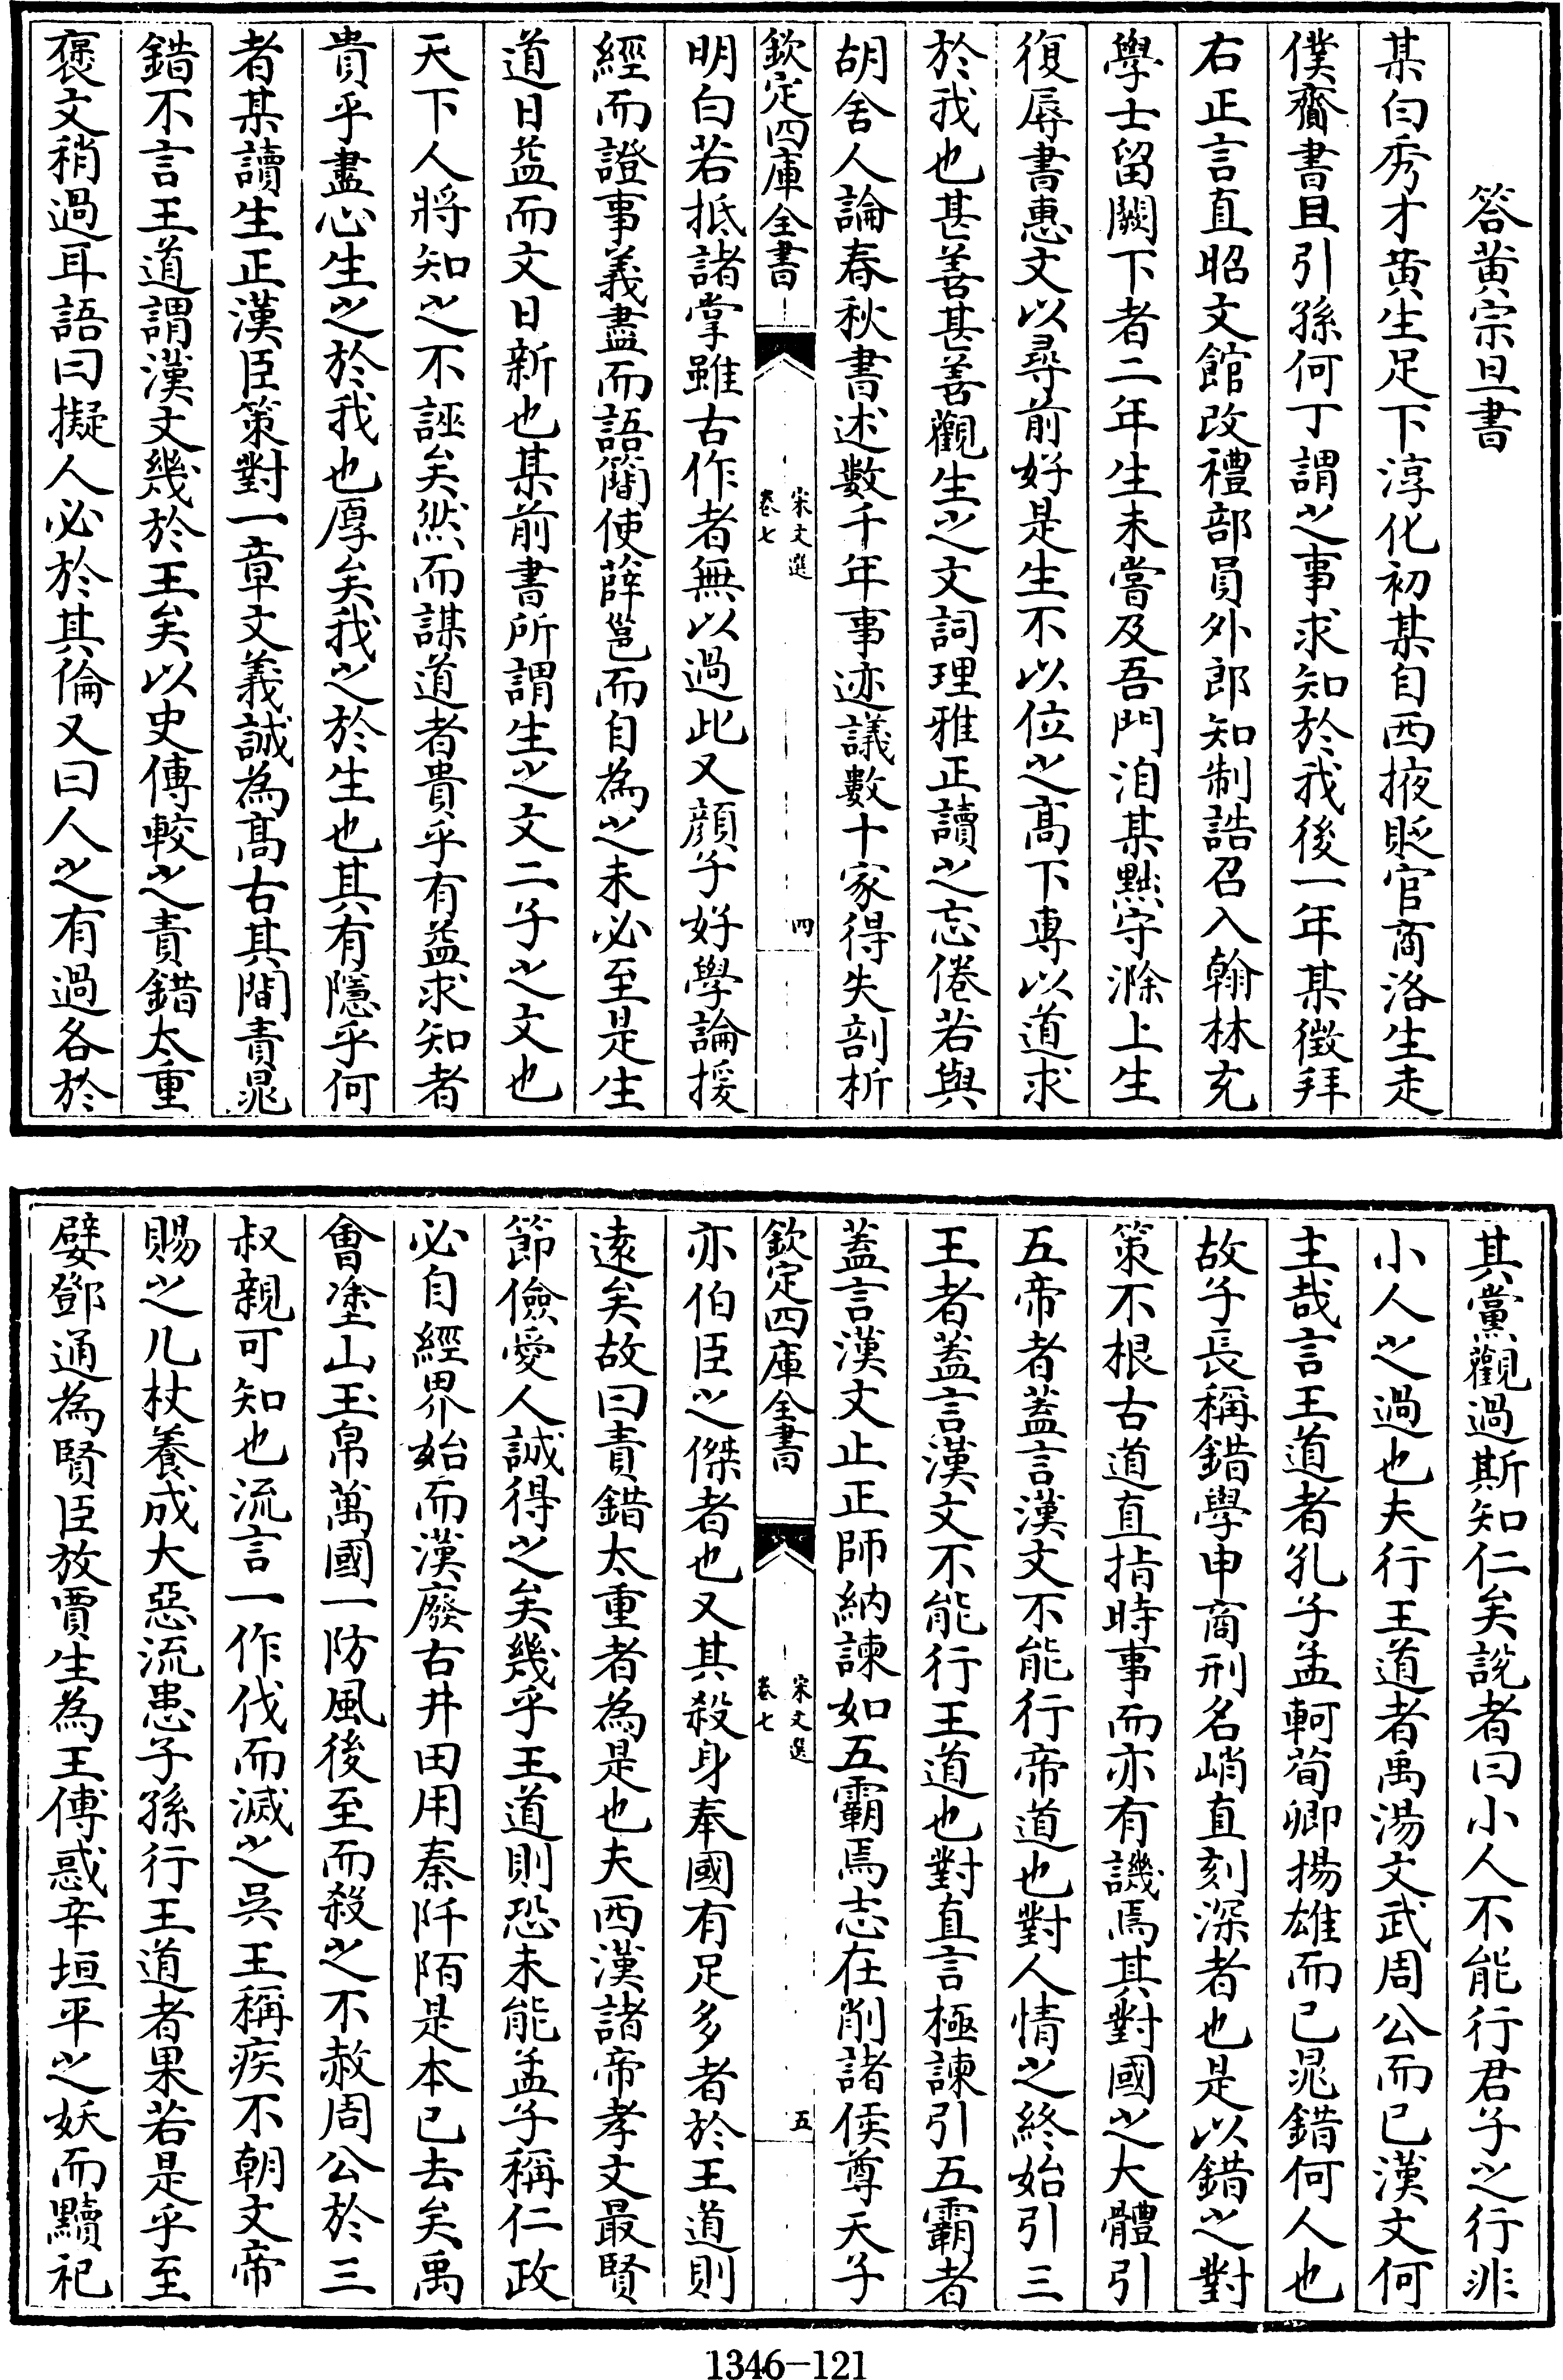 答黄宗旦書
某白秀才黄生足下淳化初某自西掖貶官商洛生走
僕齎書且引孫何丁謂之事求知於我後一年某徴拜
右正言直昭文館改禮部員外郎知制誥召入翰林充
學士留闕下者二年生未嘗及吾門洎某黜守滁上生
復辱書惠文以尋前好是生不以位之髙下專以道求
於我也甚善甚善觀生之文詞理雅正讀之忘倦若與
胡舍人論春秋書述數千年事迹議數十家得失剖析
欽定四庫全書
宋文選
卷七
四
明白若抵諸掌雖古作者無以過此又顔子好學論援
經而證事義盡而語簡使薛邕而自為之未必至是生
道日益而文日新也某前書所謂生之文二子之文也
天下人將知之不誣矣然而謀道者貴乎有益求知者
貴乎盡心生之於我也厚矣我之於生也其有隱乎何
者某讀生正漢臣策對一章文義誠為髙古其間責晁
錯不言王道謂漢文幾於王矣以史傳較之責錯太重
褒文稍過耳語曰擬人必於其倫又曰人之有過各於
其黨觀過斯知仁矣說者曰小人不能行君子之行非
小人之過也夫行王道者禹湯文武周公而已漢文何
主哉言王道者孔子孟軻荀卿揚雄而已晁錯何人也
故子長稱錯學申商刑名峭直刻深者也是以錯之對
策不根古道直指時事而亦有譏焉其對國之大體引
五帝者蓋言漢文不能行帝道也對人情之終始引三
王者蓋言漢文不能行王道也對直言極諫引五霸者
蓋言漢文止正師納諫如五霸焉志在削諸侯尊天子
欽定四庫全書
宋文選
卷七
五
亦伯臣之傑者也又其殺身奉國有足多者於王道則
逺矣故曰責錯太重者為是也夫西漢諸帝孝文最賢
節儉愛人誠得之矣幾乎王道則恐未能孟子稱仁政
必自經界始而漢廢古井田用秦阡陌是本已去矣禹
會塗山玉帛萬國一防風後至而殺之不赦周公於三
叔親可知也流言一作伐而滅之吳王稱疾不朝文帝
賜之几杖養成大惡流患子孫行王道者果若是乎至
嬖鄧通為賢臣放賈生為王傅惑辛垣平之妖而黷祀
1346-121